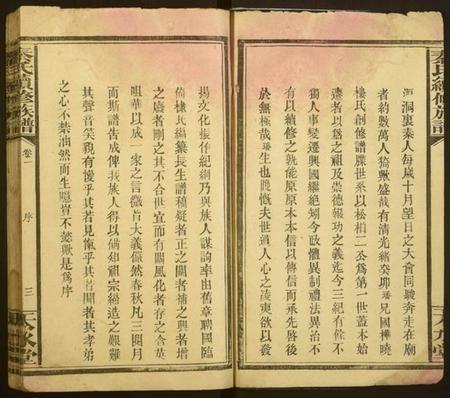 洞裏秦人每歲十月望日之大會同駿奔走在廟
者約數萬人猗歟盛哉有清光緒癸卯璠兄樺曉
樓氏創修譜牒世系以松相二公為第一世蓋本始
遷者以為之祖及崇德報功之義迄今三紀有餘不
獨人事變遷興國繼絕矧今政體異制禮法異治不
有以續修之孰能原原本本信以傳信而承先啓後
於無極哉璠生也晚慨夫世道人心之淩夷欲以發
揚文化振作紀綱乃與族人謀詢率由舊章聘國臨
倚棣氏編纂長生譜稿疑者正之闕者補之興者增
之廢者刪之其不合世宜而有關風化者存之含英
咀華以成一家之言微旨大義儼然春秋凡三閱月
而斯譜告成俾我族人得以備知祖宗締造之艱難
其聲音笑貌有優乎其若見愾乎其若聞者其孝弟
之心不禁油然而生戩豈不懿歟是為序
秦氏續修族譜
卷一
序
三
天水堂
秦氏續修族譜